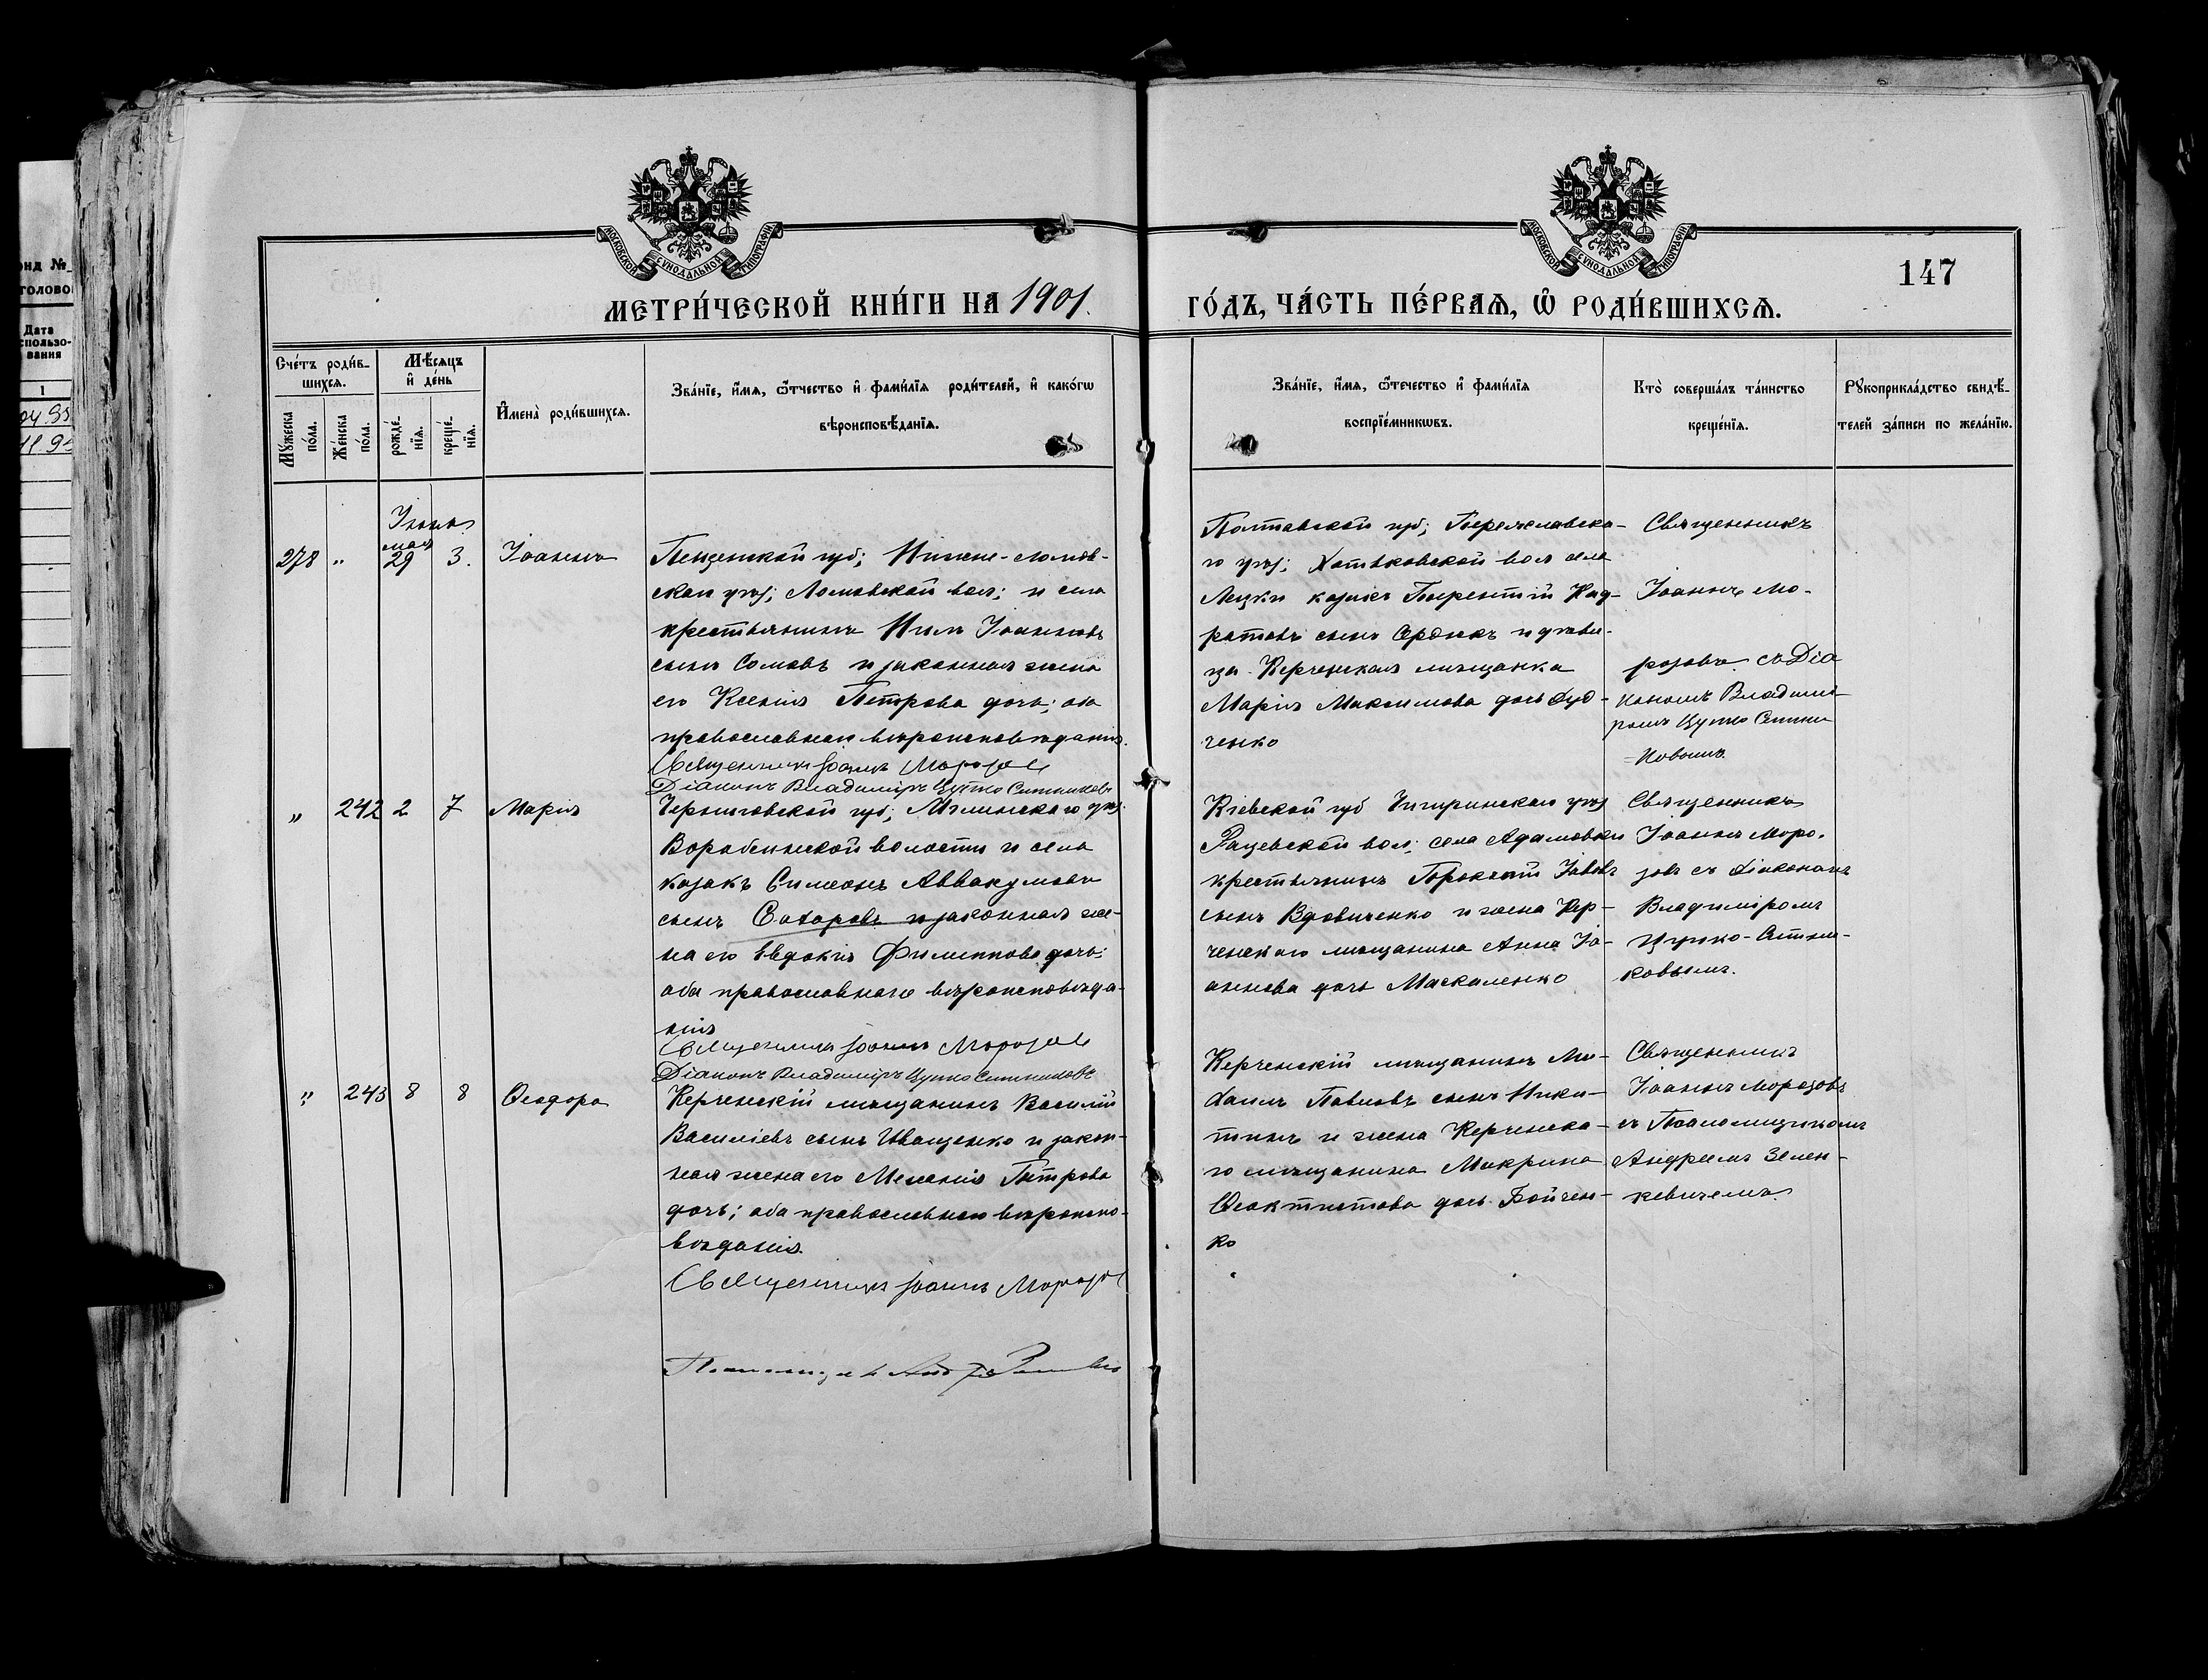 МЕТРИ́ЧЕСКОЙ КНИ́ГИ НА 1901.
ГО́ДЪ, ЧА́СТЬ ПЕ́РВАѦ, Ѡ РОДИ́ВШИХСѦ.
147
МОСКОВСКОЙ СѴНОДАЛЬНОЙ ТИПОГРАФІИ
МОСКОВСКОЙ СѴНОДАЛЬНОЙ ТИПОГРАФІИ
Сче́тъ роди́в-
шихсѧ.
Мꙋ́жеска по́ла.
Же́нска по́ла.
Мѣ́сѧцъ
и҆ де́нь
рожде́-
нїѧ.
креще́-
нїѧ.
И҆мена̀ роди́вшихсѧ.
Зва́нїе, и҆́мѧ, ѻ҆́тчество и҆ фами́лїѧ роди́телей, и҆ како́гѡ
вѣроисповѣ́данїѧ.
Зва́нїе, и҆́мѧ, ѻ҆́течество и҆ фами́лїѧ
воспрїе́мникѡвъ.
Кто̀ соверша́лъ та́инство
креще́нїѧ.
Рꙋкоприкла́дство свидѣ́-
телей за́писи по жела́нїю.
Іюнь
мая
278 " 29 3. Іоаннъ
Пензенской губ; Нижне-Ломов-
скаго уѣз; Ломовской вол; и села
крестьянинъ Нилъ Іоанновъ
сынъ Сомовъ и законная жена
его Ксенія Петрова дочь; оба
православнаго вѣроисповѣданія.
Священникъ Іоаннъ Морозовъ
Діаконъ Владиміръ Цутко Ситниковъ
Полтавской губ; Переяславска-
го уѣз; Хотьковской вол села
Лецки казакъ Терентій Код-
ратовъ сынъ Сердюкъ и дѣви-
ца Керченская мѣщанка
Марія Максимова дочь Дуд-
ченко
Священникъ
Іоаннъ Мо-
розовъ съ Діа
кономъ Владими-
ромъ Цутко Ситни
-ковымъ.
" 242 2 7 Марія
Черниговской губ; Мглинскаго уѣз;
Воробеинской волости и села
казакъ Симеонъ Аввакумовъ
сынъ Сахаровъ и законная же-
на его Евдокія Филиппова дочь;
оба православнаго вѣроисповѣда-
нія
Священникъ Іоаннъ Морозовъ
Діаконъ Владиміръ Цутко Ситниковъ
Кіевской губ Чигиринскаго уѣз
Рацевской вол; села Адамовки
крестьянинъ Прокопій Іововъ
сынъ Вдовиченко и жена Кер-
ченскаго мѣщанина Анна Іо-
аннова дочь Маскаленко
Священникъ
Іоаннъ Моро-
зовъ съ діакономъ
Владиміромъ
Цутко-Ситни-
ковымъ.
" 243 8 8 Ѳеодора
Керченскій мѣщанинъ Василій
Василіевъ сынъ Иващенко и закон-
ная жена его Меланія Петрова
дочь; оба православнаго вѣроиспо-
вѣданія.
Священникъ Іоаннъ Морозовъ
Псаломщикъ
Керченскій мѣщанинъ Ми-
хаилъ Павловъ сынъ Ники-
тинъ и жена Керченска-
го мѣщанина Макрина
Ѳеоктистова дочь Бойчен-
ко
Священникъ
Іоаннъ Морозовъ
съ Псаломщикомъ
Андреемъ Зелен-
кевичемъ.
Дата
спользо-
вания
1